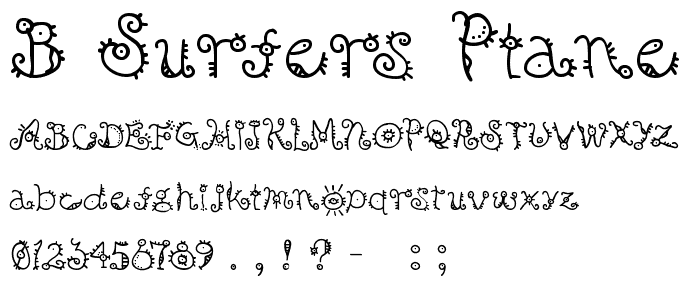 B Surfers Plane
ABCDEFGHIJKLMNOPQRSTUVWXYZ
abcdefghijklmnopqrstuvwxyz
0123456789 . , ! ? - : ;